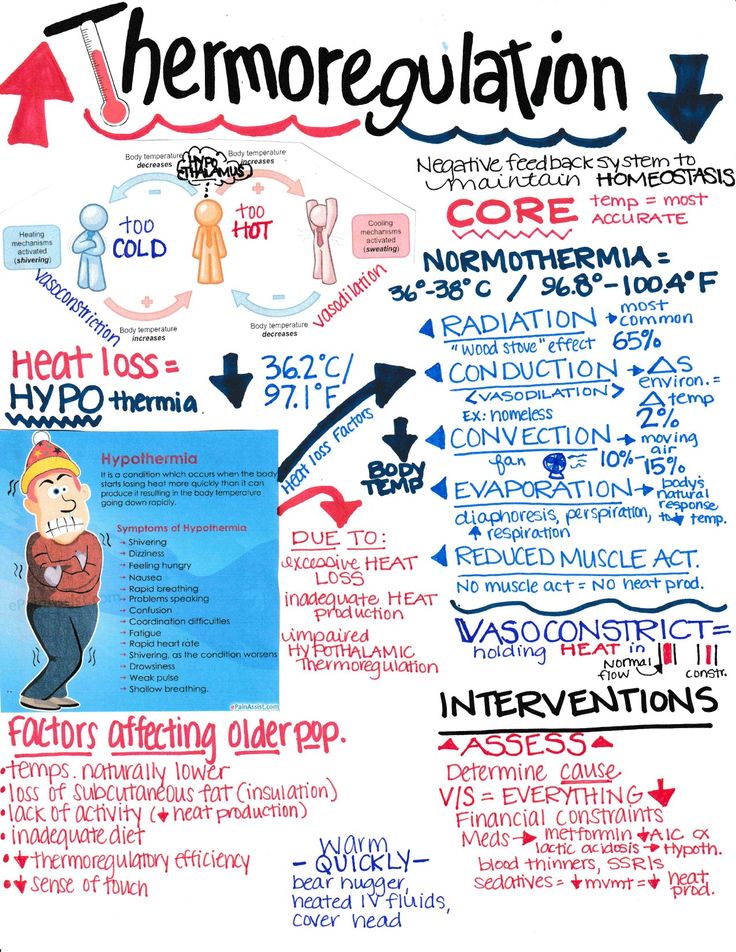 Thermoregulation
Body temperature
decreases
HYPO
THALAMUS
Body temperature
increases
Heating
mechanisms
activated
(shivering)
too
COLD
too
HOT
Cooling
mechanisms
activated
(sweating)
vasoconstriction
vasodilation
Body temperature
increases
Body temperature
decreases
Negative feedback system to
maintain HOMEOSTASIS
CORE temp = most
ACCURATE
NORMOTHERMIA =
36°-38°C / 96.8°-100.4°F
RADIATION → most
common
"wood stove" effect 65%
CONDUCTION → ΔS
environ. =
Δ temp
<VASODILATION>
EX: homeless 2%
CONVECTION → moving
air
fan 10%-
15%
EVAPORATION → body's
natural
response
to ↓ temp.
diaphoresis, perspiration,
↑ respiration
REDUCED MUSCLE ACT.
NO muscle act = NO heat prod.
Heat loss =
HYPO thermia
↓ 36.2°C/
97.1°F
Heat loss Factors
↓ BODY
TEMP
Hypothermia
It is a condition which occurs when the body
starts losing heat more quickly than it can
produce it resulting in the body temperature
going down rapidly.
Symptoms of Hypothermia
→ Shivering
→ Dizziness
→ Feeling hungry
→ Nausea
→ Rapid breathing
→ Problems speaking
→ Confusion
→ Coordination difficulties
→ Fatigue
→ Rapid heart rate
→ Shivering, as the condition worsens
→ Drowsiness
→ Weak pulse
→ Shallow breathing.
ePainAssist.com
DUE TO:
excessive HEAT
LOSS
inadequate HEAT
production
impaired
HYPOTHALAMIC
Thermoregulation
VASOCONSTRICT =
holding HEAT in
Normal
flow
constr.
Factors affecting older pop.
• temps. naturally lower
• loss of subcutaneous fat (insulation)
• lack of activity (↓ heat production)
• inadequate diet
• ↓ thermoregulatory efficiency
• ↓ sense of touch
Warm
- QUICKLY -
bear hugger,
heated IV fluids,
cover head
INTERVENTIONS
ASSESS
Determine cause
V/S = EVERYTHING ↓
Financial constraints
Meds → metformin ↓ A1C
lactic acidosis → Hypoth.
blood thinners, SSRIs
sedatives = ↓ mvmt = ↓ heat
prod.